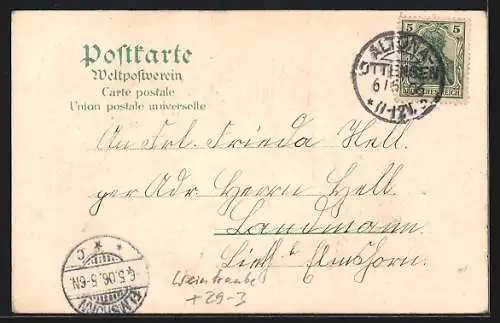 Postkarte
Weltpostverein
Carte postale
Union postale universelle
5 5
DEUTSCHES REICH
ALTONA-
OTTENSEN
6/5
*11-12V.
An Frl. Frieda Hell.
per Adr Herrn Hell.
Landmann.
b Elmshorn.
* * C
6.5.06.5-6N.
ELMSHORN
Weintraube
+29-3